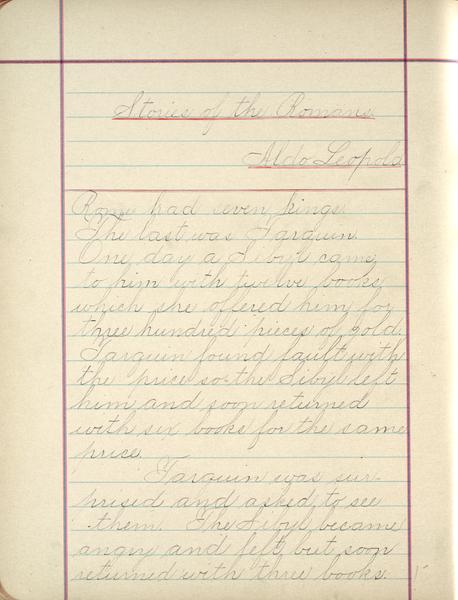 Stories of the Romans.
Aldo Leopold
Rome had seven kings.
The last was Tarquin.
One day a Sibyl came
to him with twelve books
which she offered him for
three hundred pieces of gold.
Tarquin found fault with
the price so the Sibyl left
him and soon returned
with six books for the same
price.
Tarquin was sur-
prised and asked to see
them. The Sibyl became
angry and left, but soon
returned with three books.